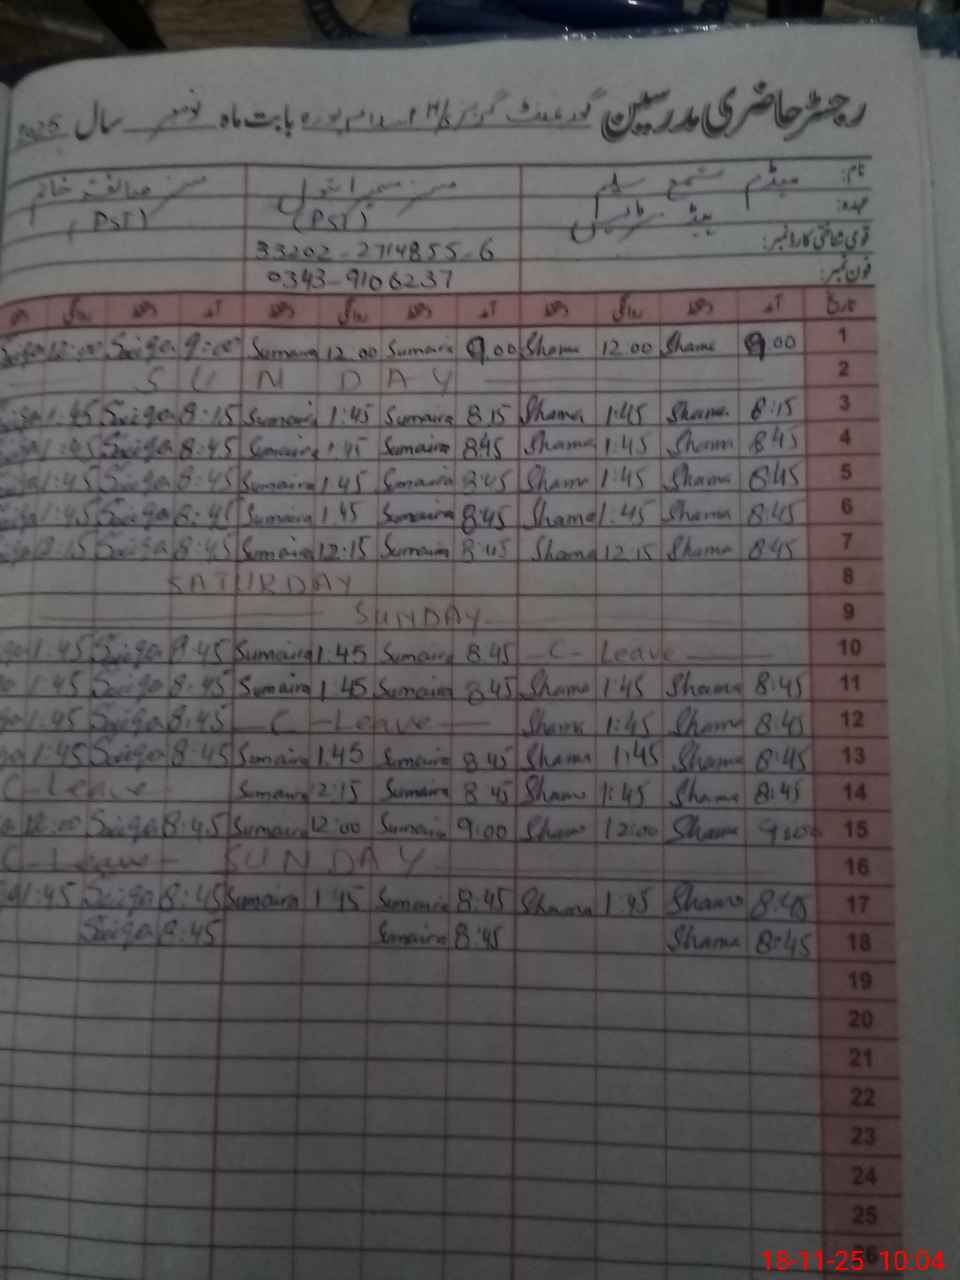 رجسٹر حاضری مدرسین گورنمنٹ گرلز بابت ماہ نومبر سال 2025
نام: میڈم شمع سلیم مسز سمیرا بتول مسز صائقہ خانم
عہدہ: ہیڈ مسٹریس (PST) (PST)
قومی شناختی کارڈ نمبر: 33202-2714855-6
فون نمبر: 0343-9106237
تاریخ آمد دستخط روانگی دستخط آمد دستخط روانگی دستخط آمد دستخط روانگی
1 9.00 Shama 12.00 Shama 9.00 Sumaira 12.00 Sumaira 9:00 Saiqa 12:00
2 SUNDAY
3 8:15 Shama 1:45 Shama 8:15 Sumaira 1:45 Sumaira 8:15 Saiqa 1:45
4 8:45 Shama 1:45 Shama 8:45 Sumaira 1:45 Sumaira 8:45 Saiqa 1:45
5 8:45 Shama 1:45 Shama 8:45 Sumaira 1:45 Sumaira 8:45 Saiqa 1:45
6 8:45 Shama 1:45 Shama 8:45 Sumaira 1:45 Sumaira 8:45 Saiqa 1:45
7 8:45 Shama 12:15 Shama 8:45 Sumaira 12:15 Sumaira 8:45 Saiqa 12:15
8 SATURDAY
9 SUNDAY
10 C-Leave 8:45 Sumaira 1:45 Sumaira Saiqa 1:45
11 8:45 Shama 1:45 Shama 8:45 Sumaira 1:45 Sumaira 8:45 Saiqa 1:45
12 8:45 Shama 1:45 Shama C-Leave 8:45 Saiqa 1:45
13 8:45 Shama 1:45 Shama 8:45 Sumaira 1:45 Sumaira 8:45 Saiqa 1:45
14 8:45 Shama 1:45 Shama 8:45 Sumaira 12:15 Sumaira C-Leave
15 9:00 Shama 12:00 Shama 9:00 Sumaira 12:00 Sumaira 8:45 Saiqa 12:00
16 SUNDAY C-Leave
17 8:45 Shama 1:45 Shama 8:45 Sumaira 1:45 Sumaira 8:45 Saiqa 1:45
18 8:45 Shama 8:45 Sumaira 8:45 Saiqa
19
20
21
22
23
24
25
26
18-11-25 10:04